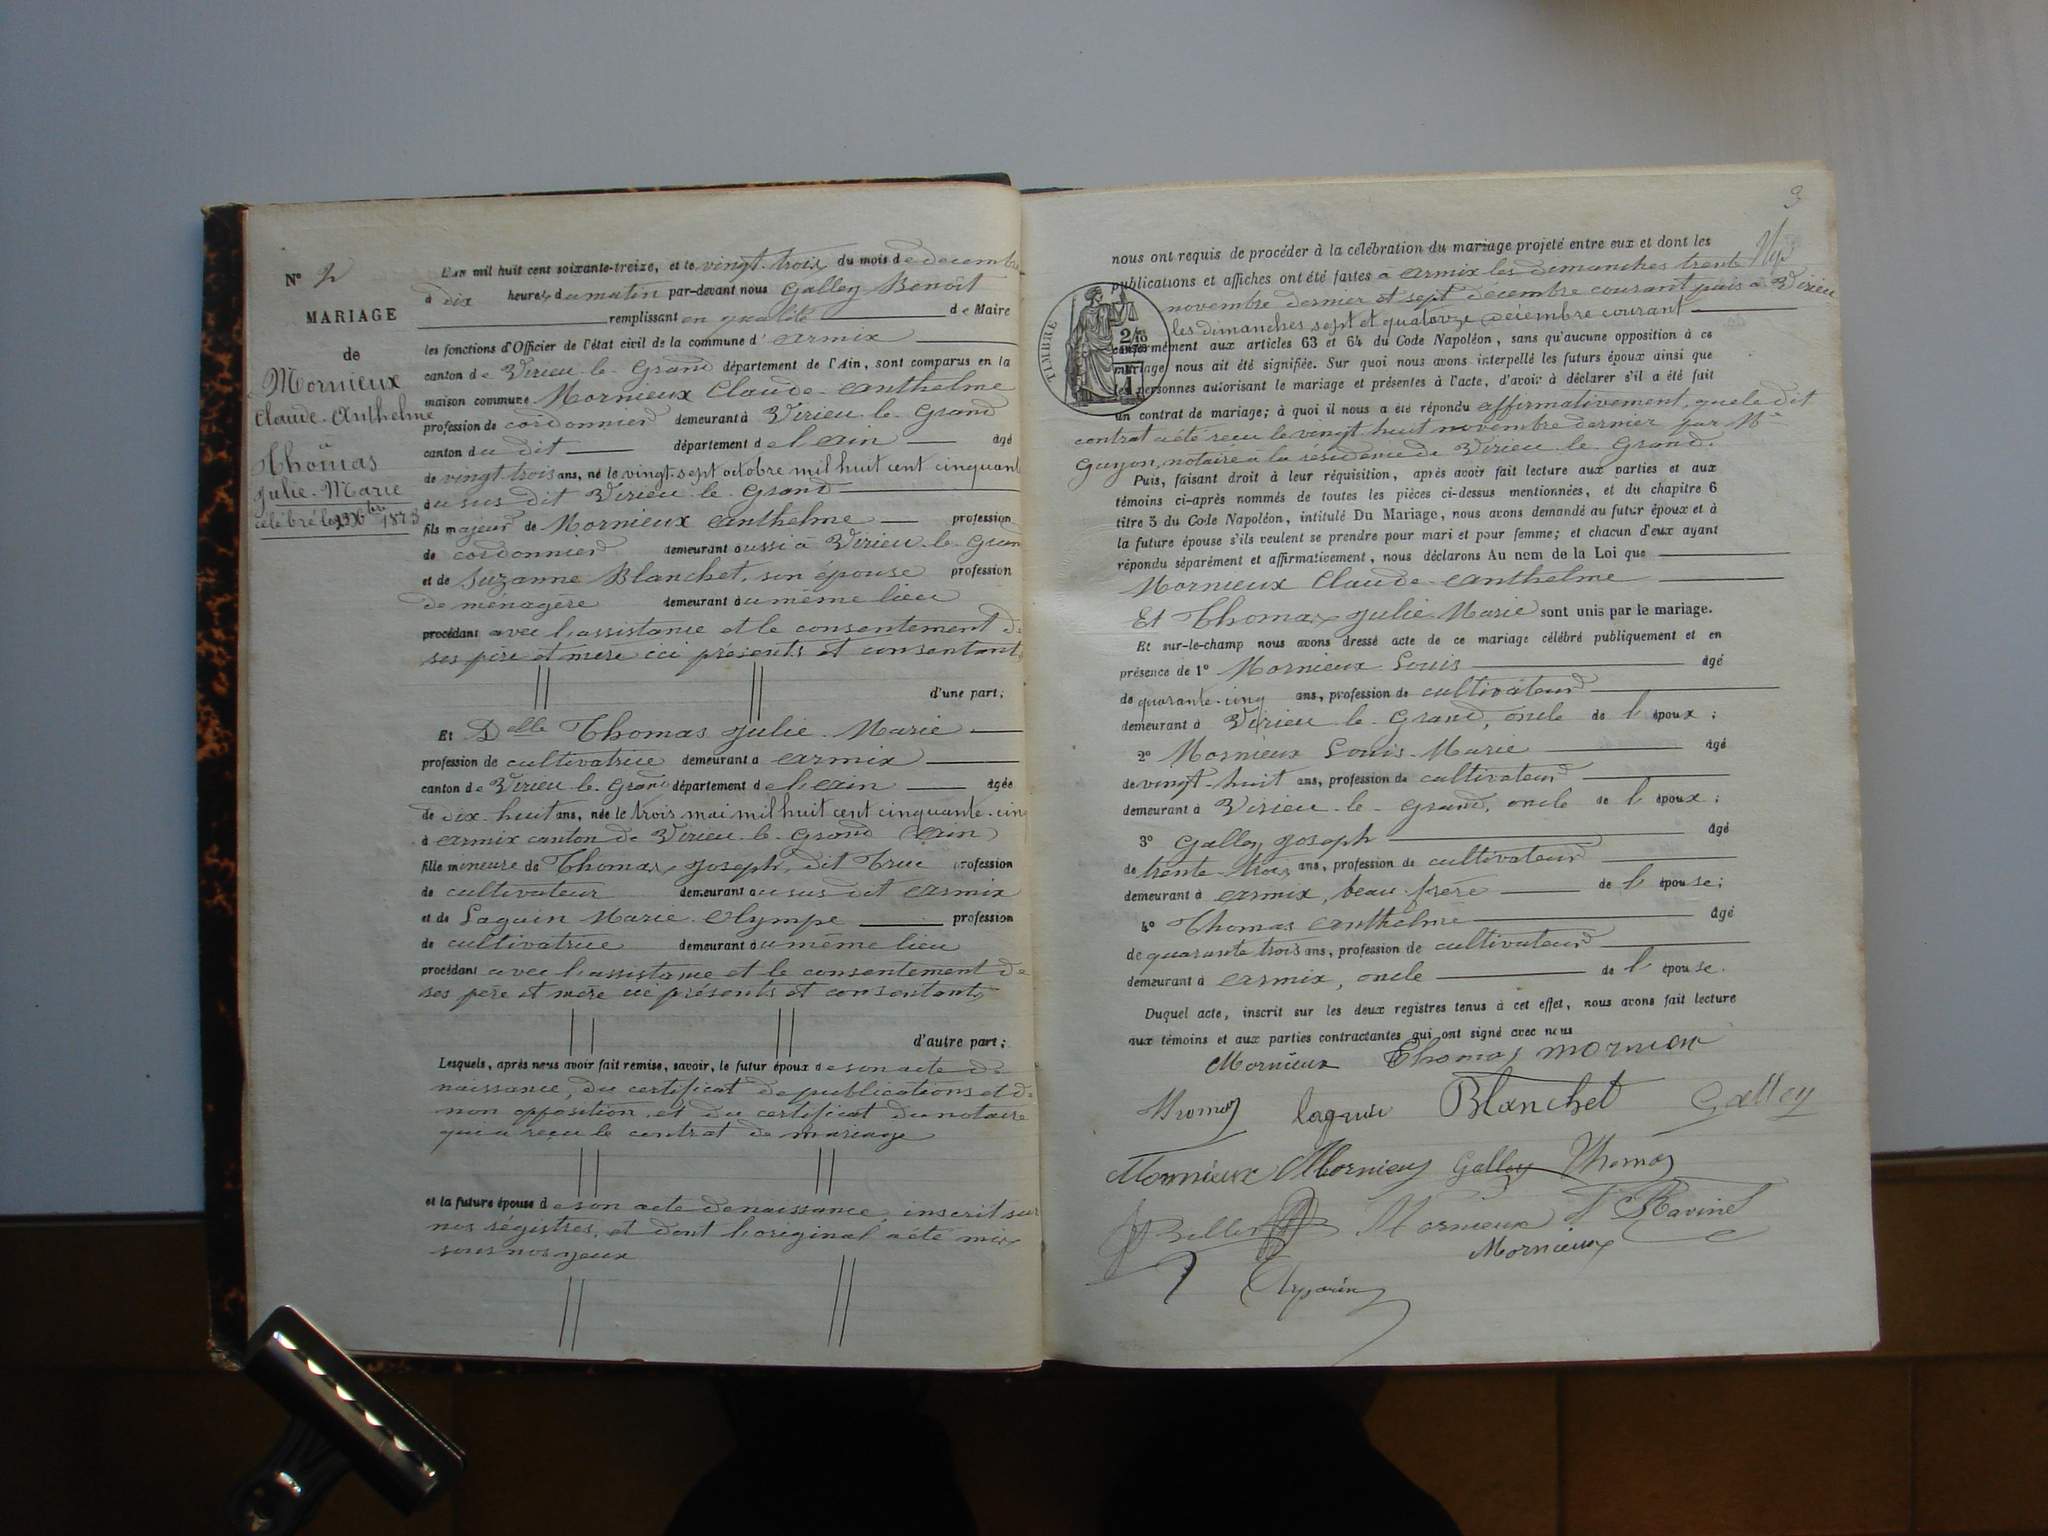 N° 2
MARIAGE
de
Mornieux
Claude-Anthelme
à
Thomas
Julie-Marie
célébré le 23 Xbre 1873
L'an mil huit cent soixante-treize, et le vingt-trois du mois de décembre
à dix heures du matin par-devant nous Galley Benoît
remplissant en qualité de Maire
les fonctions d'Officier de l'état civil de la commune d'Armix
canton de Virieu-le-Grand département de l'Ain, sont comparus en la
maison commune Mornieux Claude-Anthelme
profession de cordonnier demeurant à Virieu-le-Grand
canton du dit département de l'Ain âgé
de vingt-trois ans, né le vingt-sept octobre mil huit cent cinquante
au sus dit Virieu-le-Grand
fils majeur de Mornieux Anthelme profession
de cordonnier demeurant aussi à Virieu-le-Grand
et de Suzanne Blanchet, son épouse profession
de ménagère demeurant au même lieu
procédant avec l'assistance et le consentement de
ses père et mère ici présents et consentants
d'une part;
Et Delle Thomas Julie-Marie
profession de cultivatrice demeurant à Armix
canton de Virieu-le-Grand département de l'Ain âgée
de dix-huit ans, née le trois mai mil huit cent cinquante-cinq
à Armix canton de Virieu-le-Grand (Ain)
fille mineure de Thomas Joseph, dit Truc profession
de cultivateur demeurant au sus dit Armix
et de Laguin Marie-Olympe profession
de cultivatrice demeurant au même lieu
procédant avec l'assistance et le consentement de
ses père et mère ici présents et consentants
d'autre part;
Lesquels, après nous avoir fait remise, savoir, le futur époux de son acte de
naissance, du certificat de publications et de
non opposition, et du certificat du notaire
qui a reçu le contrat de mariage
et la future épouse de son acte de naissance inscrit sur
nos régistres, et dont l'original a été mis
sous nos yeux
3
nous ont requis de procéder à la célébration du mariage projeté entre eux et dont les
publications et affiches ont été faites à Armix les dimanches trente
novembre dernier et sept décembre courant puis à Virieu
les dimanches sept et quatorze décembre courant
TIMBRE
conformément aux articles 63 et 64 du Code Napoléon, sans qu'aucune opposition à ce
mariage nous ait été signifiée. Sur quoi nous avons interpellé les futurs époux ainsi que
les personnes autorisant le mariage et présentes à l'acte, d'avoir à déclarer s'il a été fait
un contrat de mariage; à quoi il nous a été répondu affirmativement, que le dit
contrat a été reçu le vingt-huit novembre dernier par Me
Guyon, notaire à la résidence de Virieu-le-Grand.
Puis, faisant droit à leur réquisition, après avoir fait lecture aux parties et aux
témoins ci-après nommés de toutes les pièces ci-dessus mentionnées, et du chapitre 6
titre 5 du Code Napoléon, intitulé Du Mariage, nous avons demandé au futur époux et à
la future épouse s'ils veulent se prendre pour mari et pour femme; et chacun d'eux ayant
répondu séparément et affirmativement, nous déclarons Au nom de la Loi que
Mornieux Claude-Anthelme
Et Thomas Julie-Marie sont unis par le mariage.
Et sur-le-champ nous avons dressé acte de ce mariage célébré publiquement et en
présence de 1° Mornieux Louis âgé
de quarante-cinq ans, profession de cultivateur
demeurant à Virieu-le-Grand, oncle de l'époux;
2° Mornieux Louis-Marie âgé
de vingt-huit ans, profession de cultivateur
demeurant à Virieu-le-Grand, oncle de l'époux;
3° Galley Joseph âgé
de trente-trois ans, profession de cultivateur
demeurant à Armix, beau-frère de l'épouse;
4° Thomas Anthelme âgé
de quarante-trois ans, profession de cultivateur
demeurant à Armix, oncle de l'épouse.
Duquel acte, inscrit sur les deux registres tenus à cet effet, nous avons fait lecture
aux témoins et aux parties contractantes qui ont signé avec nous
Mornieux Thomas Mornieux
Thomas Laguin Blanchet Galley
Mornieux Mornieux Galley Thomas
Mornieux Ravinet
Mornieux